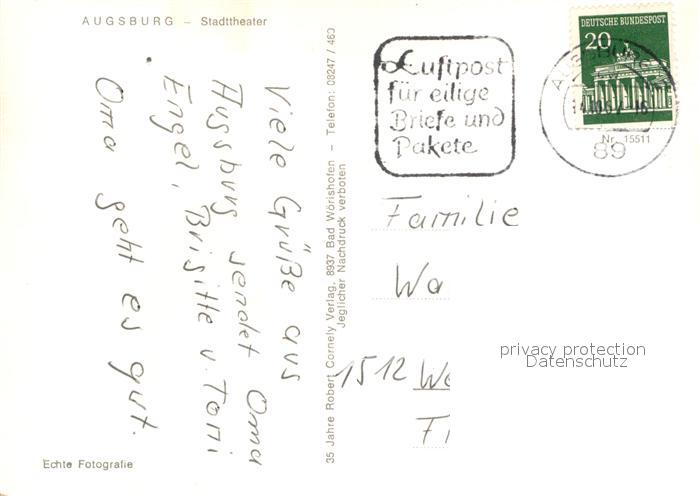 AUGSBURG – Stadttheater
Viele Grüße aus
Augsburg sendet Oma
Engel, Brigitte u. Toni
Oma geht es gut.
Echte Fotografie
35 Jahre Robert Cornely Verlag, 8937 Bad Wörishofen – Telefon: 08247 / 460
Jeglicher Nachdruck verboten
Luftpost
für eilige
Briefe und
Pakete
DEUTSCHE BUNDESPOST
20
89
Nr. 15511
Familie
Wa
1512 We
Fi
privacy protection
Datenschutz